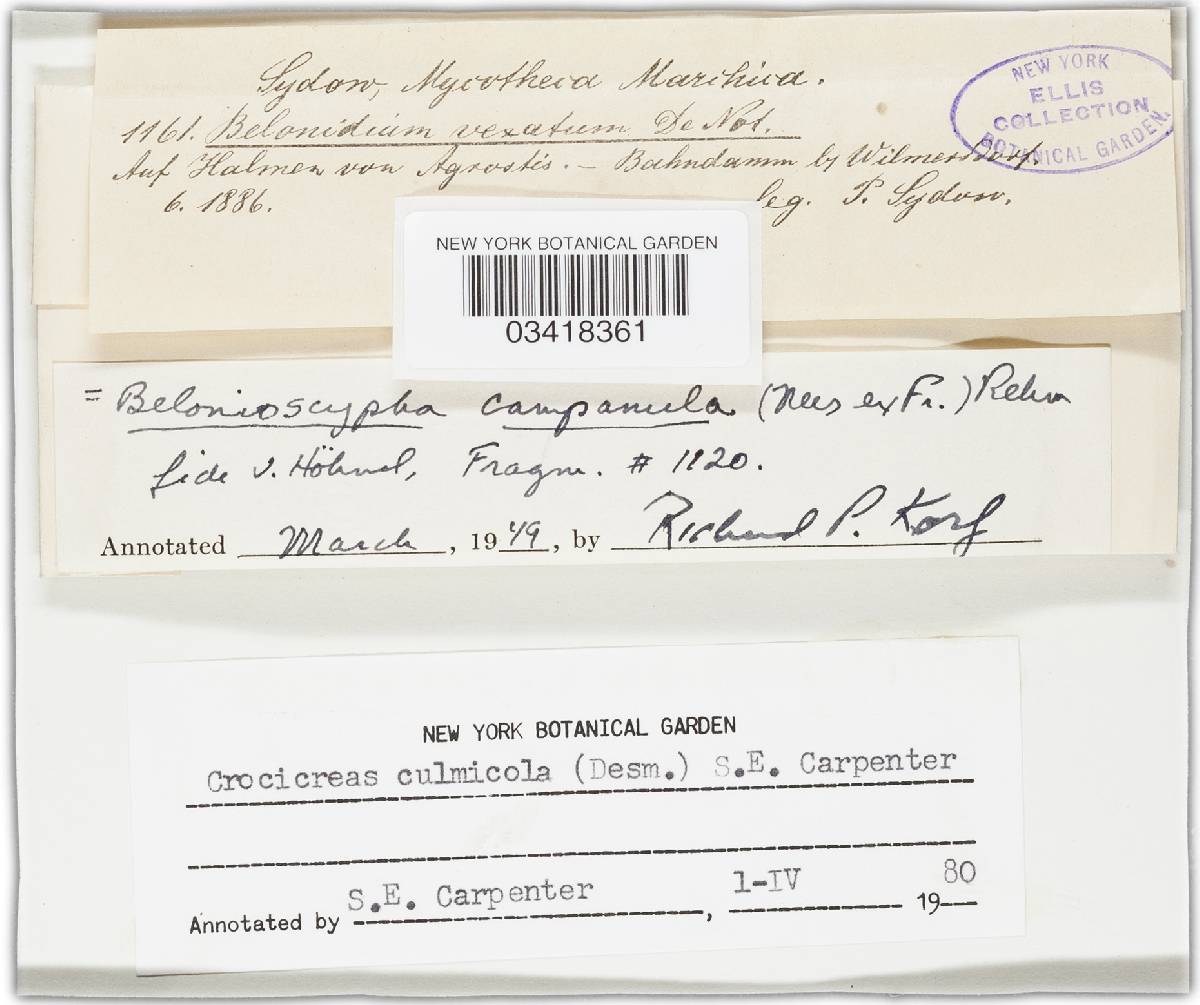 Sydow, Mycotheca Marchica.
NEW YORK
ELLIS
COLLECTION
BOTANICAL GARDEN.
1161. Belonidium vexatum De Not.
Auf Halmen von Agrostis. – Bahndamm b/ Wilmersdorf.
6. 1886.
leg. P. Sydow.
NEW YORK BOTANICAL GARDEN
03418361
= Belonioscypha campanula (Nees ex Fr.) Rehm
fide v. Höhnel, Fragm. # 1120.
Annotated March, 1949, by Richard P. Korf
NEW YORK BOTANICAL GARDEN
Crocicreas culmicola (Desm.) S.E. Carpenter
Annotated by S.E. Carpenter, 1-IV 1980